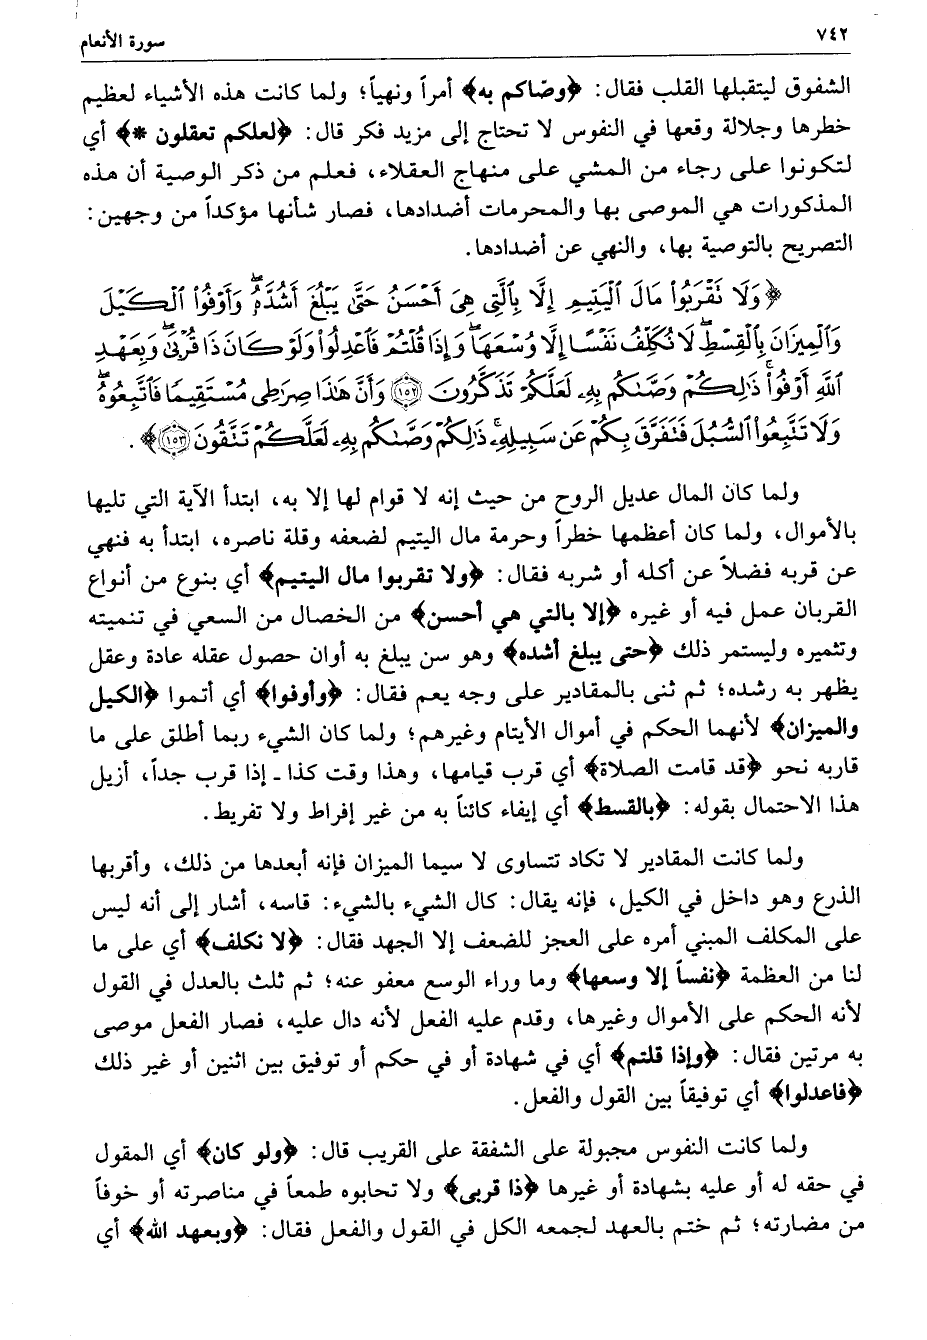 ٧٤٢ سورة الأنعام
الشفوق ليتقبلها القلب فقال: ﴿وصّاكم به﴾ أمراً ونهياً؛ ولما كانت هذه الأشياء لعظيم
خطرها وجلالة وقعها في النفوس لا تحتاج إلى مزيد فكر قال: ﴿لعلكم تعقلون *﴾ أي
لتكونوا على رجاء من المشي على منهاج العقلاء، فعلم من ذكر الوصية أن هذه
المذكورات هي الموصى بها والمحرمات أضدادها، فصار شأنها مؤكداً من وجهين:
التصريح بالتوصية بها، والنهي عن أضدادها.
﴿وَلَا نَقْرَبُوا۟ مَالَ ٱلْيَتِيمِ إِلَّا بِٱلَّتِى هِىَ أَحْسَنُ حَتَّىٰ يَبْلُغَ أَشُدَّهُۥ ۖ وَأَوْفُوا۟ ٱلْكَيْلَ
وَٱلْمِيزَانَ بِٱلْقِسْطِ ۖ لَا نُكَلِّفُ نَفْسًا إِلَّا وُسْعَهَا ۖ وَإِذَا قُلْتُمْ فَٱعْدِلُوا۟ وَلَوْ كَانَ ذَا قُرْبَىٰ ۖ وَبِعَهْدِ
ٱللَّهِ أَوْفُوا۟ ۚ ذَٰلِكُمْ وَصَّىٰكُم بِهِۦ لَعَلَّكُمْ تَذَكَّرُونَ ﴿١٥٢﴾ وَأَنَّ هَٰذَا صِرَٰطِى مُسْتَقِيمًا فَٱتَّبِعُوهُ ۖ
وَلَا تَتَّبِعُوا۟ ٱلسُّبُلَ فَتَفَرَّقَ بِكُمْ عَن سَبِيلِهِۦ ۚ ذَٰلِكُمْ وَصَّىٰكُم بِهِۦ لَعَلَّكُمْ تَتَّقُونَ ﴿١٥٣﴾﴾.
ولما كان المال عديل الروح من حيث إنه لا قوام لها إلا به، ابتدأ الآية التي تليها
بالأموال، ولما كان أعظمها خطراً وحرمة مال اليتيم لضعفه وقلة ناصره، ابتدأ به فنهي
عن قربه فضلاً عن أكله أو شربه فقال: ﴿ولا تقربوا مال اليتيم﴾ أي بنوع من أنواع
القربان عمل فيه أو غيره ﴿إلا بالتي هي أحسن﴾ من الخصال من السعي في تنميته
وتثميره وليستمر ذلك ﴿حتى يبلغ أشده﴾ وهو سن يبلغ به أوان حصول عقله عادة وعقل
يظهر به رشده؛ ثم ثنى بالمقادير على وجه يعم فقال: ﴿وأوفوا﴾ أي أتموا ﴿الكيل
والميزان﴾ لأنهما الحكم في أموال الأيتام وغيرهم؛ ولما كان الشيء ربما أطلق على ما
قاربه نحو ﴿قد قامت الصلاة﴾ أي قرب قيامها، وهذا وقت كذا ـ إذا قرب جداً، أزيل
هذا الاحتمال بقوله: ﴿بالقسط﴾ أي إيفاء كائناً به من غير إفراط ولا تفريط.
ولما كانت المقادير لا تكاد تتساوى لا سيما الميزان فإنه أبعدها من ذلك، وأقربها
الذرع وهو داخل في الكيل، فإنه يقال: كال الشيء بالشيء: قاسه، أشار إلى أنه ليس
على المكلف المبني أمره على العجز للضعف إلا الجهد فقال: ﴿لا نكلف﴾ أي على ما
لنا من العظمة ﴿نفساً إلا وسعها﴾ وما وراء الوسع معفو عنه؛ ثم ثلث بالعدل في القول
لأنه الحكم على الأموال وغيرها، وقدم عليه الفعل لأنه دال عليه، فصار الفعل موصى
به مرتين فقال: ﴿وإذا قلتم﴾ أي في شهادة أو في حكم أو توفيق بين اثنين أو غير ذلك
﴿فاعدلوا﴾ أي توفيقاً بين القول والفعل.
ولما كانت النفوس مجبولة على الشفقة على القريب قال: ﴿ولو كان﴾ أي المقول
في حقه له أو عليه بشهادة أو غيرها ﴿ذا قربى﴾ ولا تحابوه طمعاً في مناصرته أو خوفاً
من مضارته؛ ثم ختم بالعهد لجمعه الكل في القول والفعل فقال: ﴿وبعهد الله﴾ أي